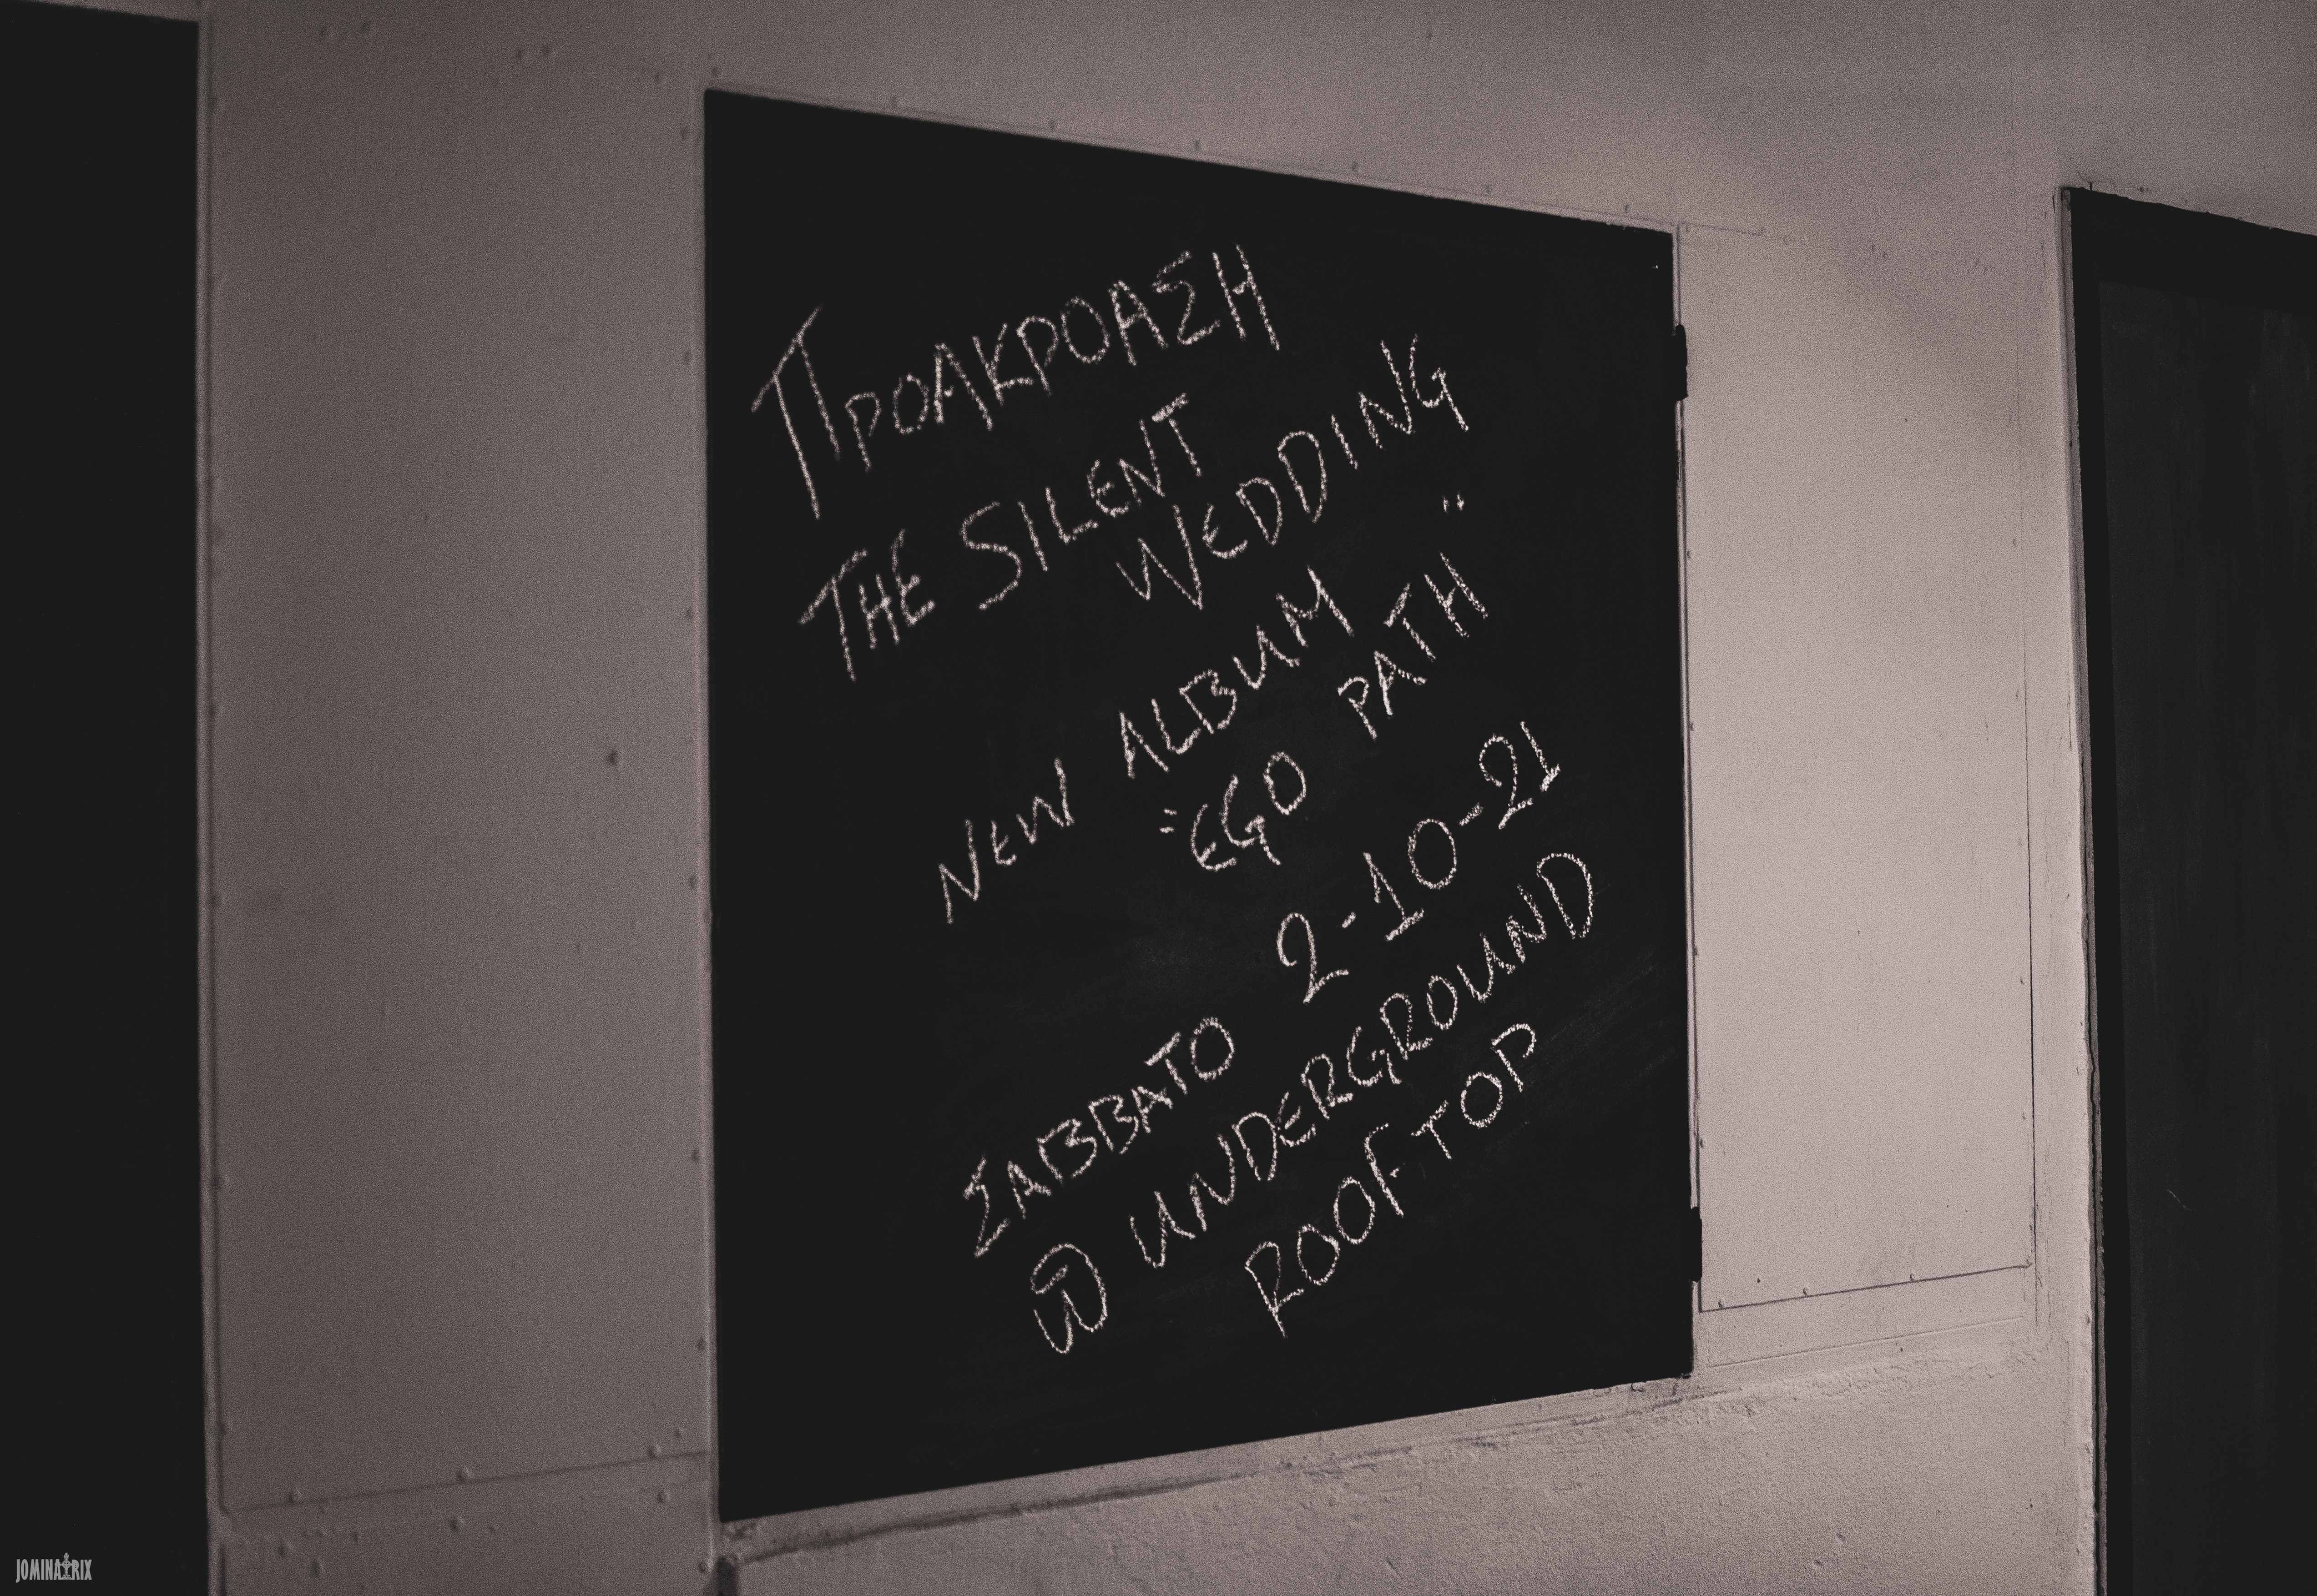 ΠΡΟΑΚΡΟΑΣΗ
THE SILENT
WEDDING
NEW ALBUM
"EGO PATH"
ΣΑΒΒΑΤΟ 2-10-21
@ UNDERGROUND
ROOFTOP
JOMINATRIX